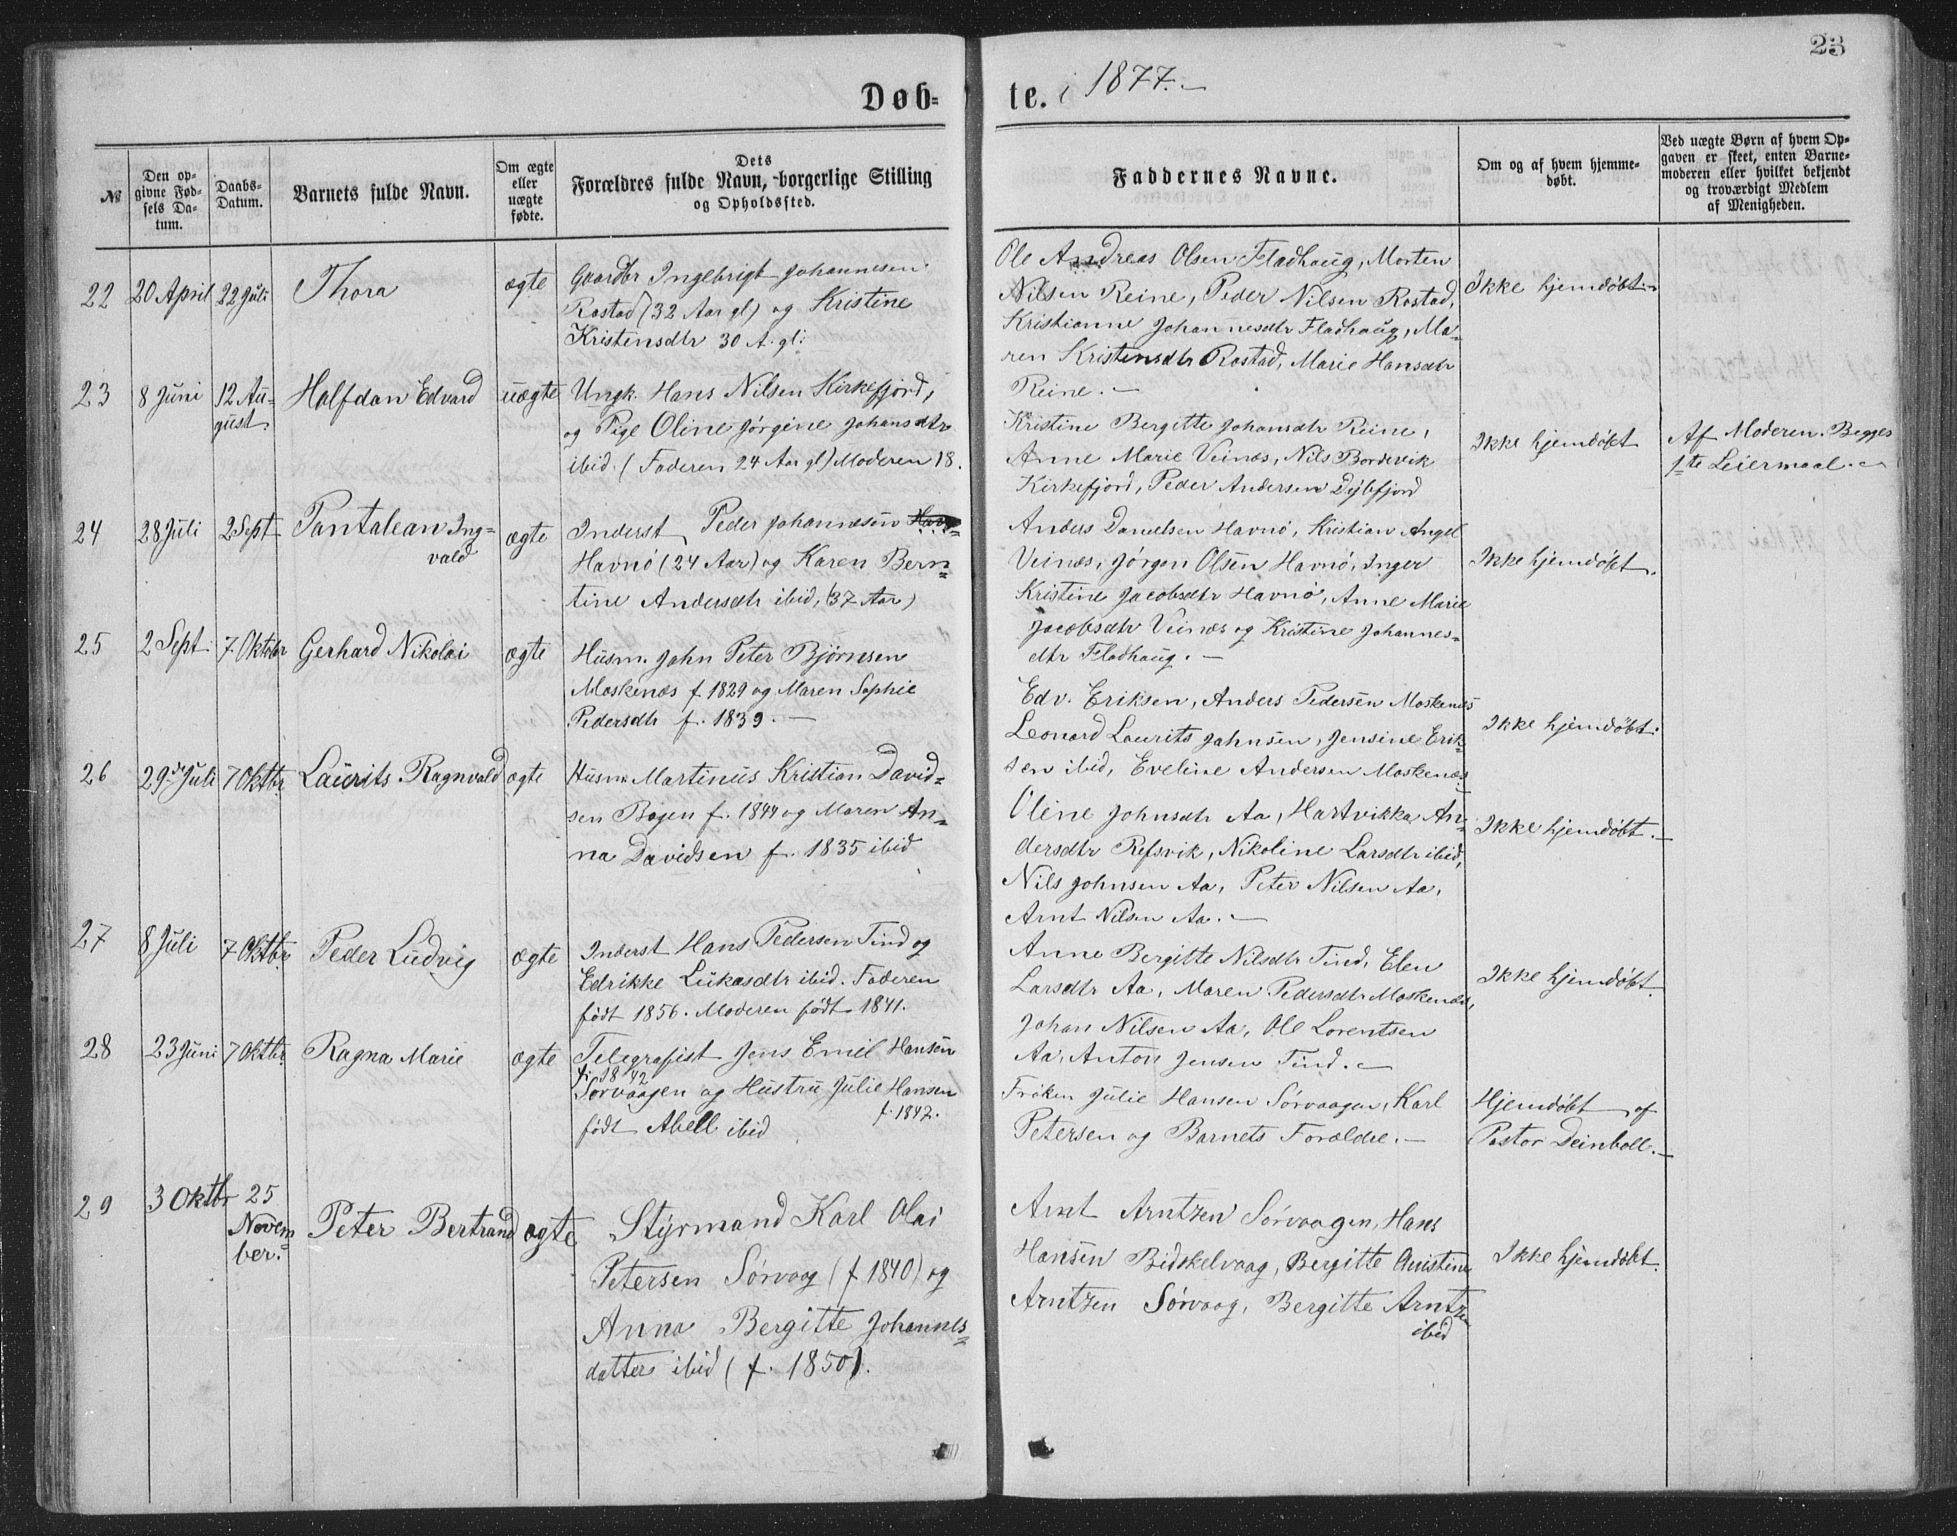 23
Døb-
te. i 1877.-
№
Den op-
givne Fød-
sels Da-
tum.
Daabs-
Datum.
Barnets fulde Navn.
Om ægte
eller
uægte
fødte.
Dets
Forældres fulde Navn, borgerlige Stilling
og Opholdssted.
Faddernes Navne.
Om og af hvem hjemme-
døbt.
Ved uægte Børn af hvem Op-
gaven er skeet, enten Barne-
moderen eller hvilket bekjendt
og troværdigt Medlem
af Menigheden.
22 20 April 22 Juli Thora ægte
Gaardbr Ingebrigt Johannesen
Rostad (32 Aar gl) og Kristine
Kristensdtr 30 A. gl:
Ole Andreas Olsen Fladhaug, Morten
Nilsen Reine, Peder Nilsen Rostad,
Kristianne Johannesdtr Fladhaug, Ma-
ren Kristensdtr Rostad, Marie Hansdtr
Reine. -
Ikke hjemdøbt. -
23 8 Juni 12 Au-
gust.
Halfdan Edvard uægte
Ungk. Hans Nilsen Kirkefjord,
og Pige Oline Jørgine Johansdtr
ibid. (Faderen 24 Aar gl) Moderen 18.
Kristine Bergitte Johansdtr Reine,
Anne Marie Veinæs, Nils Bordevik
Kirkefjord, Peder Andersen Dybfjord
Ikke hjemdøbt
Af Moderen. Begges
1te Leiermaal. -
24 28 Juli 2 Sept Pantalean Ing-
vald
ægte
Inderst Peder Johannesen
Havnø (24 Aar) og Karen Bern-
tine Andersdtr ibid, (37 Aar)
Anders Danielsen Havnø, Kristian Angel
Veinæs, Jørgen Olsen Havnø, Inger
Kristine Jacobsdtr Havnø, Anne Marie
Jacobsdtr Veinæs og Kristine Johannes-
dtr Fladhaug. -
Ikke hjemdøbt.
25 2 Sept. 7 Oktobr Gerhard Nikolai ægte
Husm. John Peter Bjørnsen
Moskenæs f. 1829 og Maren Sophie
Pedersdtr f. 1839. -
Edv. Eriksen, Anders Pedersen Moskenæs
Leonard Laurits Johnsen, Jensine Erik-
sen ibid, Eveline Andersen Moskenæs
Ikke hjemdøbt.
26 29de Juli 7 Oktbr. Laurits Ragnvald ægte
Husm Martinus Kristian David-
sen Bogen f. 1844 og Maren An-
na Davidsen f. 1835 ibid
Oline Johnsdtr Aa, Hartvikka An-
dersdtr Refsvik, Nikoline Larsdtr ibid,
Nils Johnsen Aa, Peter Nilsen Aa,
Arnt Nilsen Aa. -
Ikke hjemdøbt. -
27 8 Juli 7 Oktbr. Peder Ludvig ægte
Inderst Hans Pedersen Tind og
Edrikke Lukasdtr ibid. Faderen
født 1856. Moderen født 1841.
Anne Bergitte Nilsdtr Tind, Elen
Larsdtr Aa, Maren Pedersdtr Moskenæs,
Johan Nilsen Aa, Ole Lorentsen
Aa, Anton Jensen Tind. -
Ikke hjemdøbt.
28 23 Juni 7 Oktbr. Ragna Marie ægte
Telegrafist Jens Emil Hansen
f. 1842
Sørvaagen og Hustru Julie Hansen
f. 1842.
født Abell ibid
Frøken Julie Hansen Sørvaagen, Karl
Petersen og Barnets Forældre. -
Hjemdøbt af
Pastor Deinboll. -
29 3 Oktbr 25
Novem
ber.
Peter Bertrand ægte
Styrmand Karl Olai
Petersen Sørvaag (f 1840) og
Anna Bergitte Johannes-
datter ibid (f. 1850).
Arnt Arntzen Sørvaagen, Hans
Hansen Bidskelvaag, Bergitte Christine
Arntzen Sørvaag, Bergitte Arntzen
ibid
Ikke hjemdøbt.